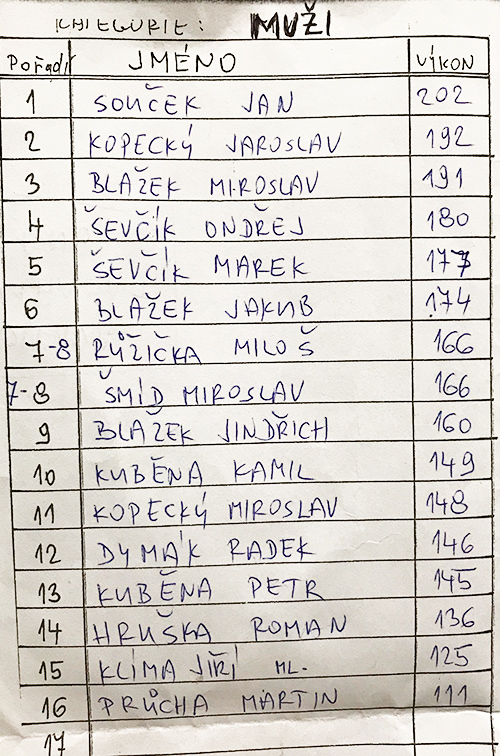 KATEGORIE: MUŽI
Pořadí JMÉNO VÝKON
1 SOUČEK JAN 202
2 KOPECKÝ JAROSLAV 192
3 BLAŽEK MIROSLAV 191
4 ŠEVČÍK ONDŘEJ 180
5 ŠEVČÍK MAREK 177
6 BLAŽEK JAKUB 174
7-8 RŮŽIČKA MILOŠ 166
7-8 ŠMÍD MIROSLAV 166
9 BLAŽEK JINDŘICH 160
10 KUBĚNA KAMIL 149
11 KOPECKÝ MIROSLAV 148
12 DYMÁK RADEK 146
13 KUBĚNA PETR 145
14 HRUŠKA ROMAN 136
15 KLÍMA JIŘÍ ML. 125
16 PRŮCHA MARTIN 111
17